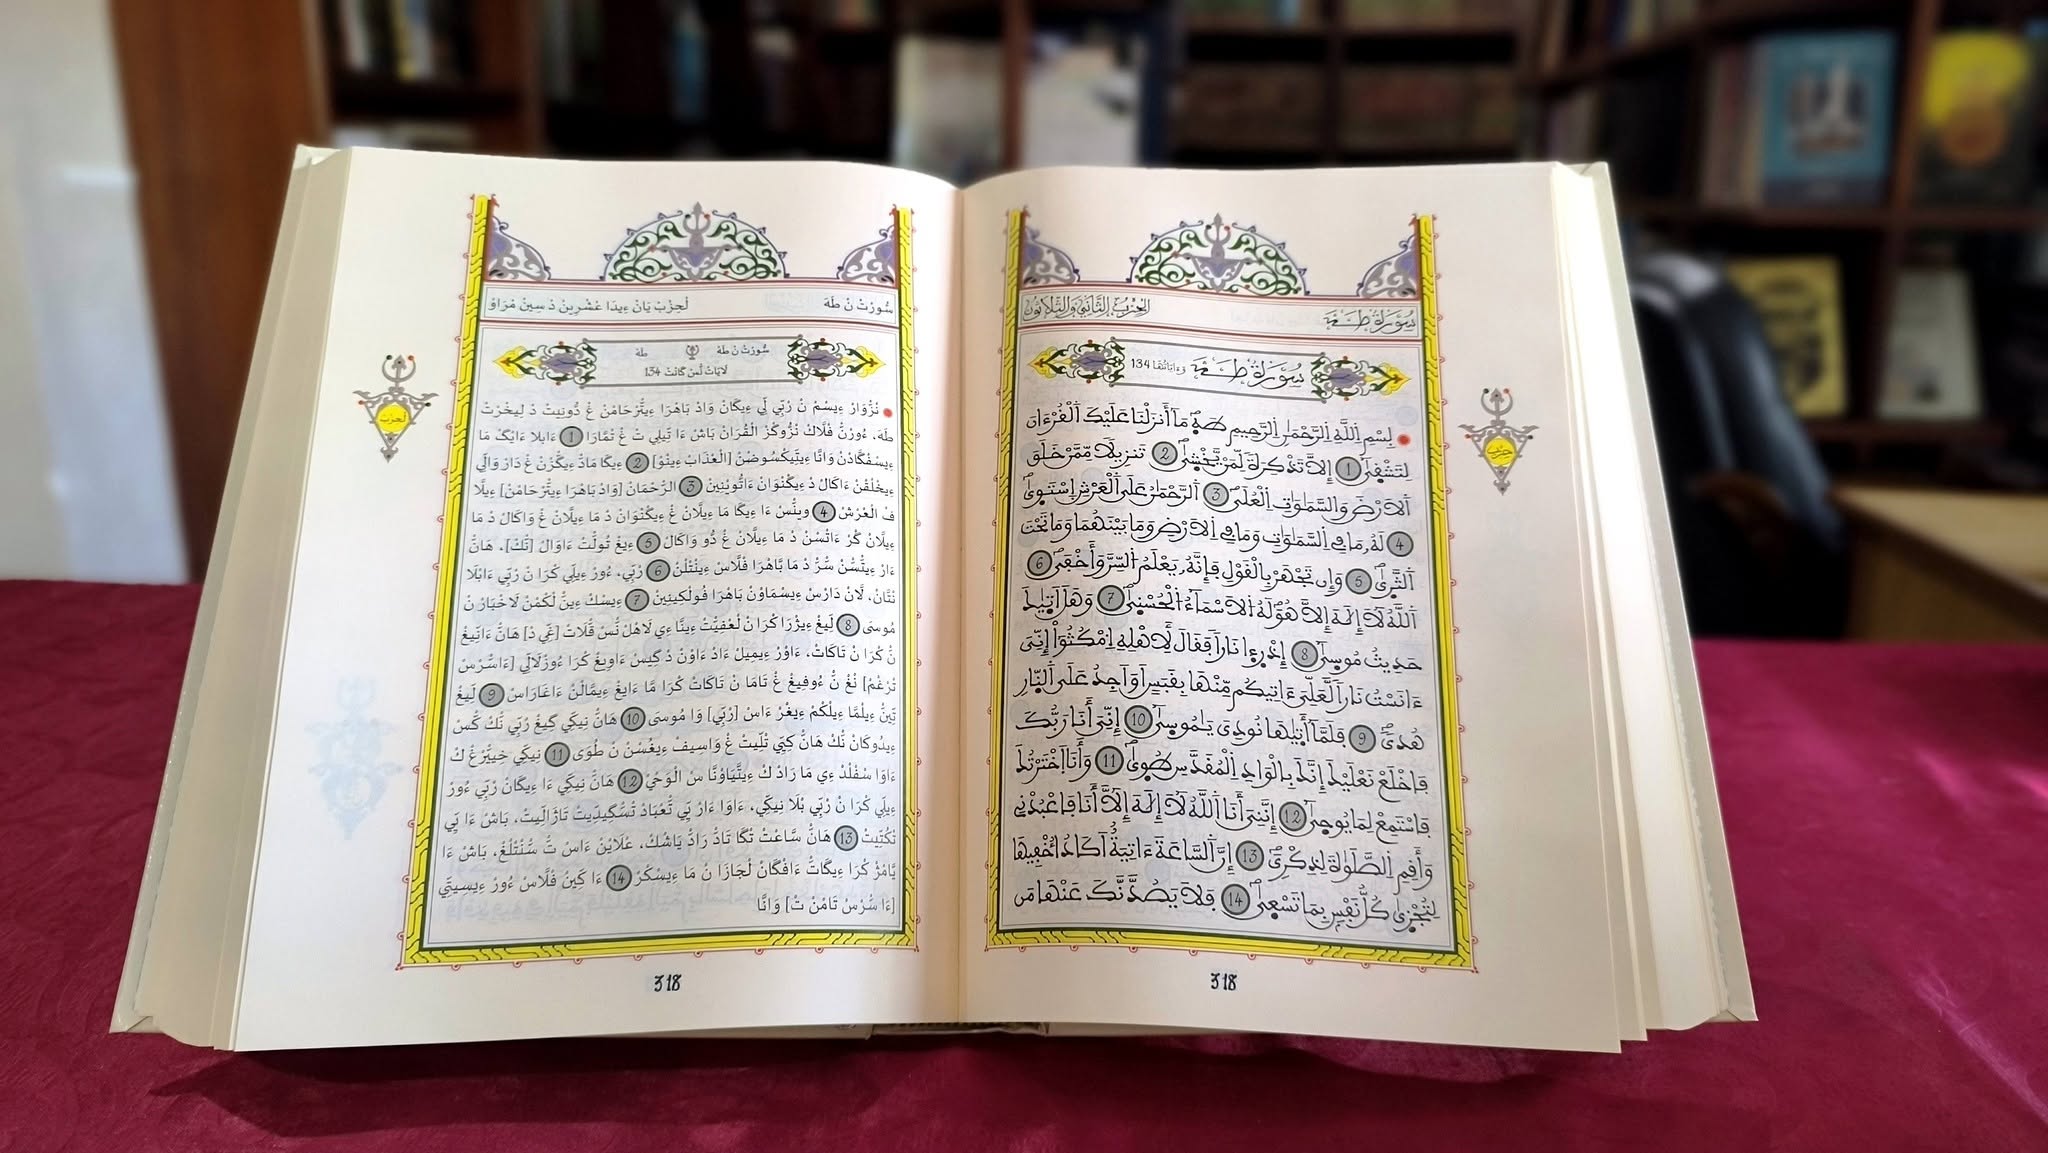 سُورَةُ طَهَ
الحِزْبُ الثَّانِي وَالثَّلَاثُونَ
سُورَةُ طَهَ وَءَايَاتُهَا 134
بِسْمِ اِللَّهِ اِلرَّحْمَٰنِ اِلرَّحِيمِ طَهَ مَآ أَنزَلْنَا عَلَيْكَ اَلْقُرْءَانَ
لِتَشْقَىٰ 1 إِلَّا تَذْكِرَةً لِّمَنْ يَّخْشَىٰ 2 تَنزِيلًا مِّمَّنْ خَلَقَ
اَلَارْضَ وَالسَّمَٰوَٰتِ اِلْعُلَى 3 اَلرَّحْمَٰنُ عَلَى اَلْعَرْشِ اِسْتَوَىٰ
4 لَهُۥ مَا فِي اِلسَّمَٰوَٰتِ وَمَا فِي اِلَارْضِ وَمَا بَيْنَهُمَا وَمَا تَحْتَ
اَلثَّرَىٰ 5 وَإِن تَجْهَرْ بِالْقَوْلِ فَإِنَّهُۥ يَعْلَمُ اُلسِّرَّ وَأَخْفَى 6
اَللَّهُ لَآ إِلَٰهَ إِلَّا هُوَ لَهُ اُلَاسْمَآءُ اُلْحُسْنَىٰ 7 وَهَلَ اَتَىٰكَ
حَدِيثُ مُوسَىٰٓ 8 إِذْ رَءِا نَارًا فَقَالَ لِأَهْلِهِ اِمْكُثُوٓاْ إِنِّيَ
ءَانَسْتُ نَارًا لَّعَلِّيَ ءَاتِيكُم مِّنْهَا بِقَبَسٍ اَوَ اَجِدُ عَلَى اَلنَّارِ
هُدًى 9 فَلَمَّآ أَتَىٰهَا نُودِيَ يَٰمُوسَىٰٓ 10 إِنِّيَ أَنَا رَبُّكَ
فَاخْلَعْ نَعْلَيْكَ إِنَّكَ بِالْوَادِ اِلْمُقَدَّسِ طُوَىٰ 11 وَأَنَا اَخْتَرْتُكَ
فَاسْتَمِعْ لِمَا يُوحَىٰٓ 12 إِنَّنِيَ أَنَا اَللَّهُ لَآ إِلَٰهَ إِلَّآ أَنَا فَاعْبُدْنِي
وَأَقِمِ اِلصَّلَوٰةَ لِذِكْرِيَ 13 إِنَّ اَلسَّاعَةَ ءَاتِيَةٌ اَكَادُ أُخْفِيهَا
لِتُجْزَىٰ كُلُّ نَفْسٍۢ بِمَا تَسْعَىٰ 14 فَلَا يَصُدَّنَّكَ عَنْهَا مَن
حِزْب
318
سُّورْتْ نْ طَهَ
لْحِزْبْ يَانْ ءِيدَا عَشْرِينْ دْ سِينْ مْرَاوْ
سُّورْتْ نْ طَهَ طه
لَايَاتْ نْسْ كَانْتْ 134
نْزْوَارْ ءِيسْمْ نْ رْبِّي لِّي ءِيكَانْ وَادْ بَاهْرَا ءِيتّْرْحَامْنْ غْ دُّونِيتْ دْ لِيخْرْتْ
طَهَ، ءُورْنّْ فْلَّاكْ نْزُّوكْزْ الْقُرَانْ بَاشْ ءَا تِّيلِي تْ غْ تْمَّارَا 1 ءَابْلَا ءَايْكْ مَا
ءِيسْفْكَّادْنْ وَانَّا ءِيتّْيكْسُوضْنْ [الْعْذَابْ ءِينْوْ] 2 ءِيكَا مَادّْ ءِيكّْزْنْ غْ دَارْ وَالِّي
ءِيخْلْقْنْ ءَاكَالْ دْ ءِيكْنْوَانْ ءَاتُّويْنِينْ 3 الرَّحْمَانْ [وَادْ بَاهْرَا ءِيتّْرْحَامْنْ] ءِيلَّا
فْ الْعْرْشْ 4 وِينّْسْ ءَا ءِيكَا مَا ءِيلَّانْ غْ ءِيكْنْوَانْ دْ مَا ءِيلَّانْ غْ وَاكَالْ دْ مَا
ءِيلَّانْ كْرْ ءَاتْسْنْ دْ مَا ءِيلَّانْ غْ دُّو وَاكَالْ 5 ءِيغْ تُولّْتْ ءَاوَالْ [نّْكْ]، هَانّْ
ءَارْ ءِيتّْسّْنْ سّْرّْ دْ مَا بَّاهْرَا فْلَّاسْ ءِينْتْلْنْ 6 رْبِّي، ءُورْ ءِيلِي كْرَا نْ رْبِّي ءَابْلَا
نْتَّانْ، لَّانْ دَارْسْ ءِيسْمَاوْنْ بَاهْرَا فُولْكِينِينْ 7 ءِيسْكْ ءِينّْ لْكْمْنْ لَاخْبَارْ نْ
مُوسَى 8 لِّيغْ ءِيزْرَا كْرَا نْ لْعْفِيّْتْ ءِينَّا ءِي لَاهْلْ نّْسْ قْلَاتْ [غِّي دْ] هَانّْ ءَانِّيغْ
نّْ كْرَا نْ تَاكَاتْ، ءَاوْرْ ءِيمِيلْ ءَادْ ءَاوْنْ دْ كِيسْ ءَاوِيغْ كْرَا ءُوزْلَالِي [ءَاسْرْسْ
تْرْغْمْ] نْغْ نّْ ءُوفِيغْ غْ تَامَا نْ تَاكَاتْ كْرَا مَّا ءَايْغْ ءِيمَّالْنْ ءَاغَارَاسْ 9 لِّيغْ
تّْينّْ ءِيلْمَّا ءِيلْكْمْ ءِيغْرْ ءَاسْ [رْبِّي] وَا مُوسَى 10 هَانّْ نِيكِّي كِيغْ رْبِّي نّْكْ كّْسْ
ءِيدُوكَانْ نّْكْ هَانّْ كِيِّي تْلِّيتْ غْ وَاسِيفْ ءِيغُسْنْ نْ طُوَى 11 نِيكِّي خْيِّرْغْ كْ
ءَاوَا سْفْلْدْ ءِي مَا رَادْ كْ ءِيتْيَاوْنَّا سْ الْوَحْيْ 12 هَانّْ نِيكِّي ءَا ءِيكَانْ رْبِّي ءُورْ
ءِيلِي كْرَا نْ رْبِّي بْلَا نِيكِّي، ءَاوَا ءَارْ يِّي تْعْبَادْ تْسّْكِيدِيتْ تَازَالِّيتْ، بَاشْ ءَا يِّي
تْكْتِيتْ 13 هَانّْ سَّاعْتْ تْكَا تَادّْ رَادّْ يَاشْكْ، عْلَايْنْ ءَاسْ تّْ سّْنْتْلْغْ، بَاشْ ءَا
يَّامْزْ كْرَا ءِيكَاتّْ ءَافْكَانْ لْجَازَا نْ مَا ءِيسْكْرْ 14 ءَا كِينْ فْلَّاسْ ءُورْ ءِيسِيتِّي
[ءَا سْرْسْ تَامْنْ تْ] وَانَّا
لْحِزْبْ
318